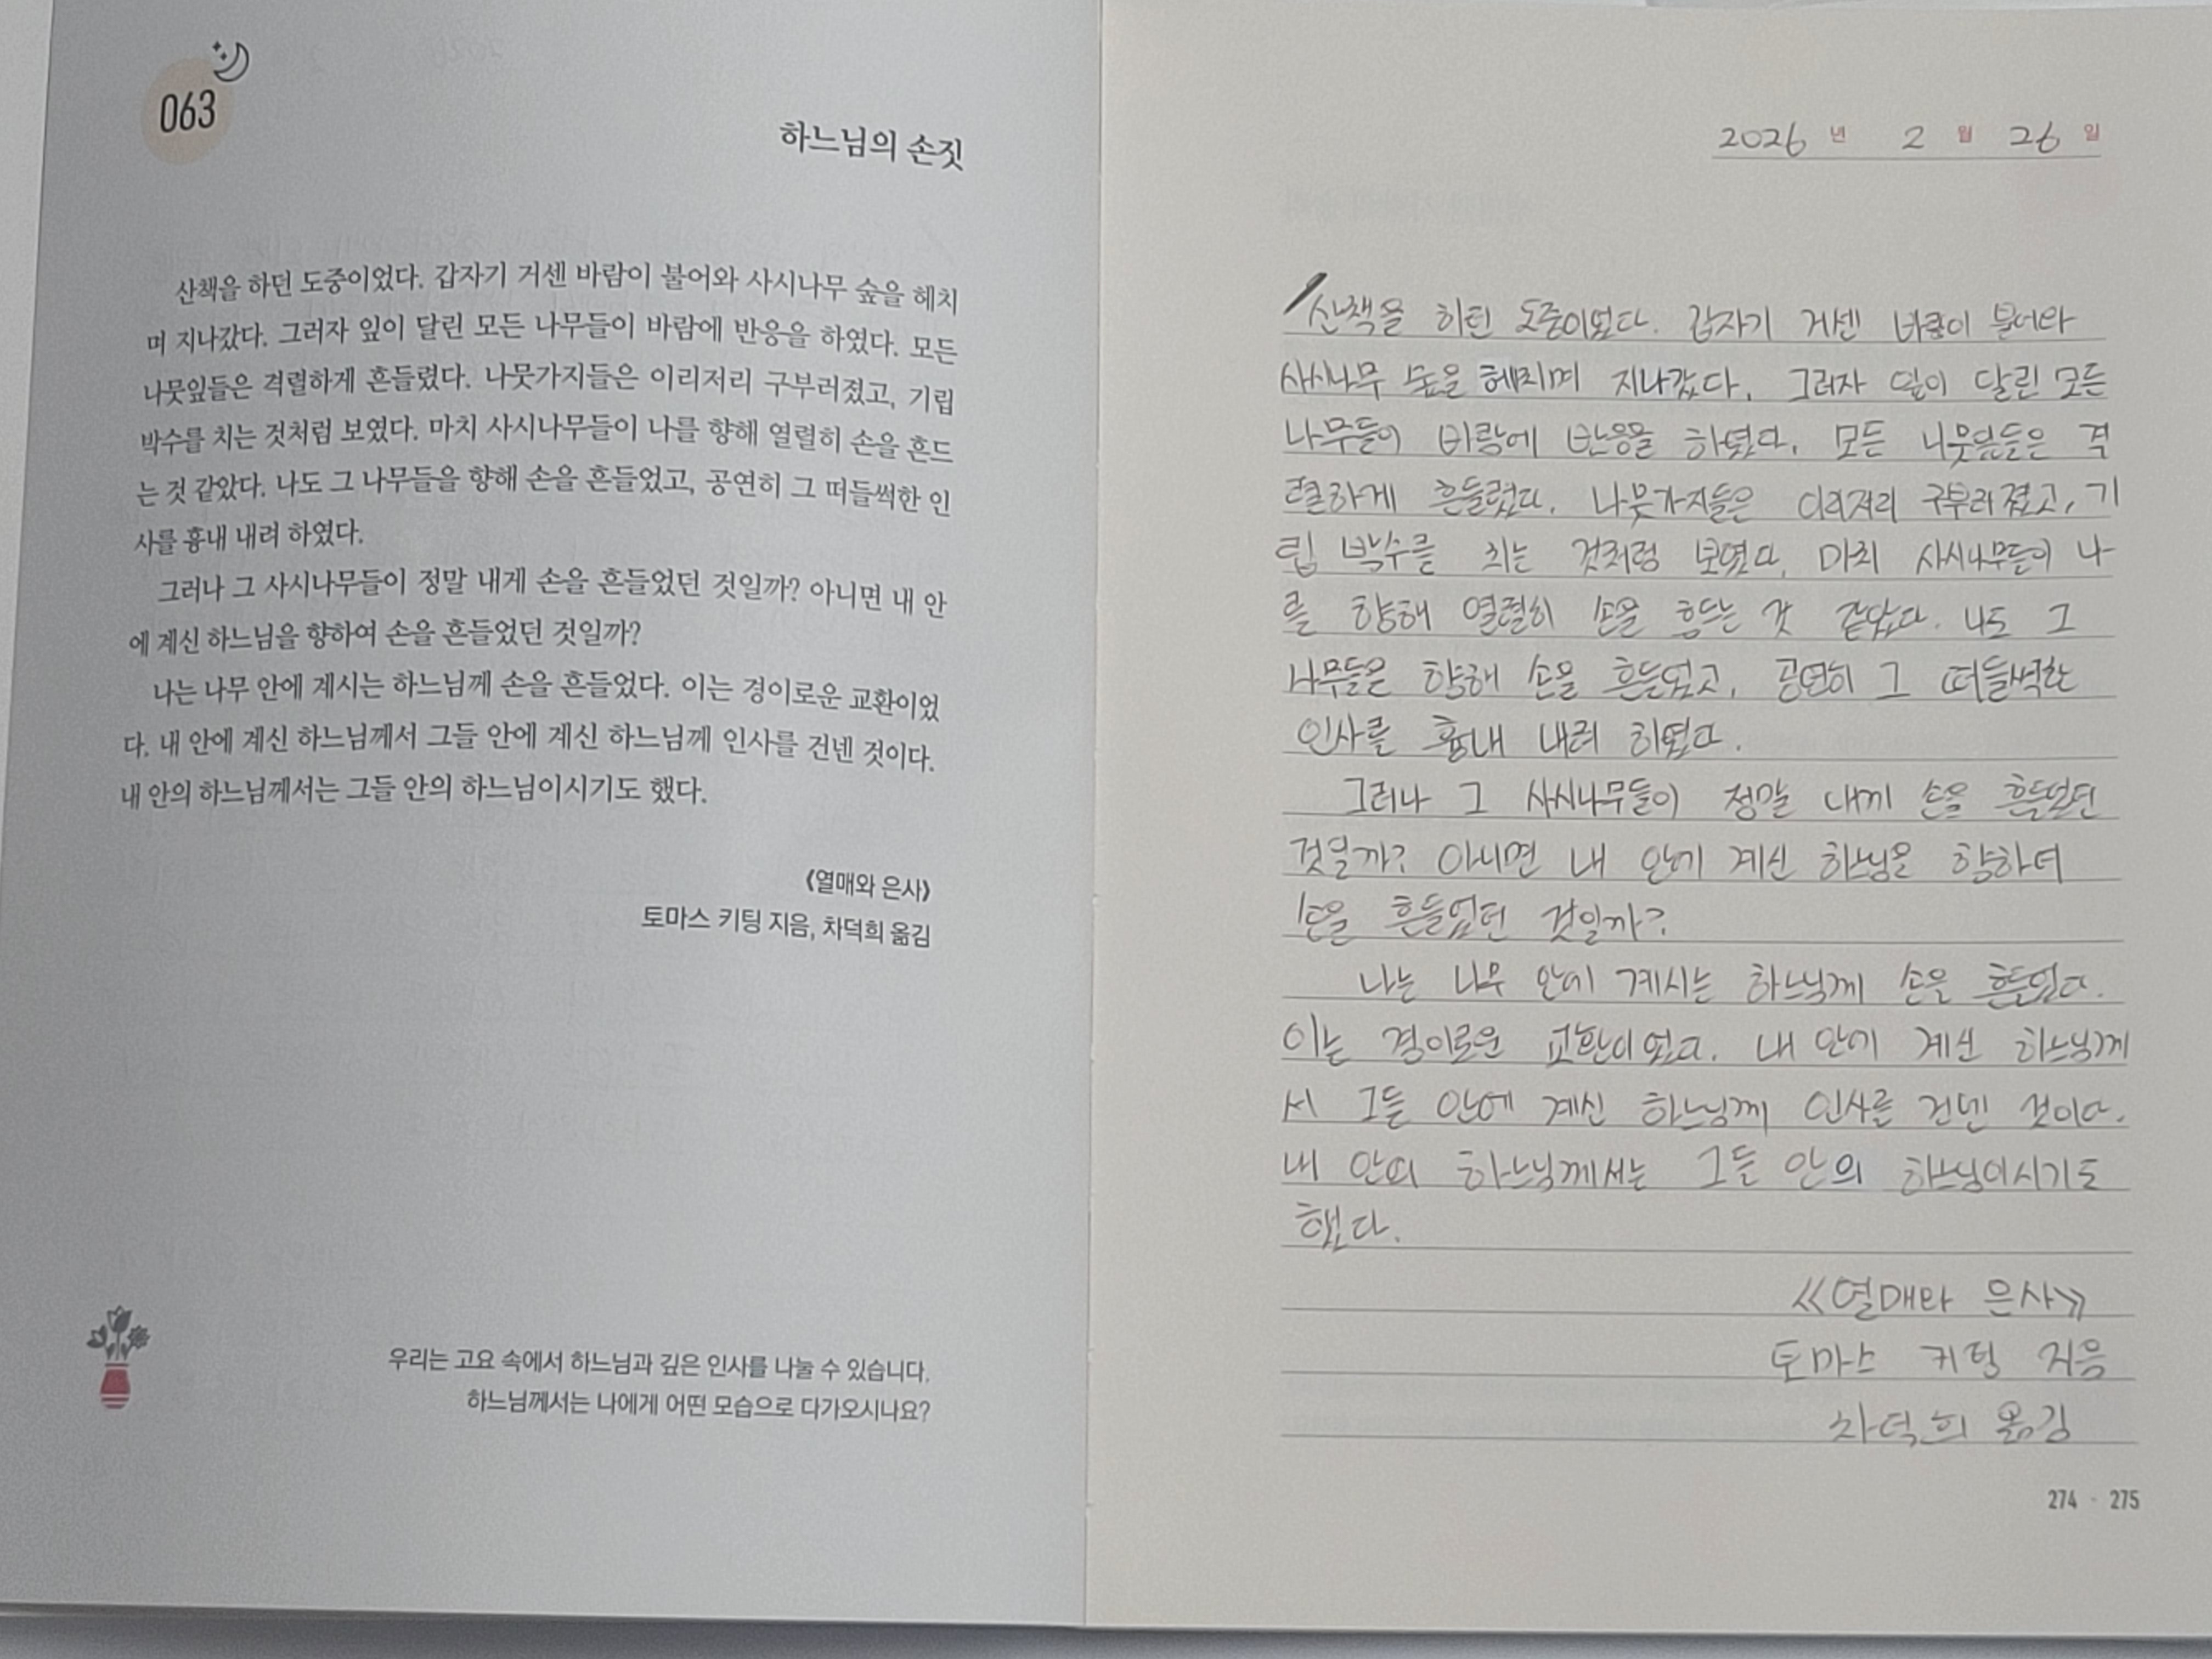 063
하느님의 손짓
산책을 하던 도중이었다. 갑자기 거센 바람이 불어와 사시나무 숲을 헤치
며 지나갔다. 그러자 잎이 달린 모든 나무들이 바람에 반응을 하였다. 모든
나뭇잎들은 격렬하게 흔들렸다. 나뭇가지들은 이리저리 구부러졌고, 기립
박수를 치는 것처럼 보였다. 마치 사시나무들이 나를 향해 열렬히 손을 흔드
는 것 같았다. 나도 그 나무들을 향해 손을 흔들었고, 공연히 그 떠들썩한 인
사를 흉내 내려 하였다.
그러나 그 사시나무들이 정말 내게 손을 흔들었던 것일까? 아니면 내 안
에 계신 하느님을 향하여 손을 흔들었던 것일까?
나는 나무 안에 계시는 하느님께 손을 흔들었다. 이는 경이로운 교환이었
다. 내 안에 계신 하느님께서 그들 안에 계신 하느님께 인사를 건넨 것이다.
내 안의 하느님께서는 그들 안의 하느님이시기도 했다.
《열매와 은사》
토마스 키팅 지음, 차덕희 옮김
우리는 고요 속에서 하느님과 깊은 인사를 나눌 수 있습니다.
하느님께서는 나에게 어떤 모습으로 다가오시나요?
2026 년 2 월 26 일
산책을 하던 도중이었다. 갑자기 거센 바람이 불어와
사시나무 숲을 헤치며 지나갔다. 그러자 잎이 달린 모든
나무들이 바람에 반응을 하였다. 모든 나뭇잎들은 격
렬하게 흔들렸다. 나뭇가지들은 이리저리 구부러졌고, 기
립 박수를 치는 것처럼 보였다. 마치 사시나무들이 나
를 향해 열렬히 손을 흔드는 것 같았다. 나도 그
나무들은 향해 손을 흔들었고, 공연히 그 떠들썩한
인사를 흉내 내려 하였다.
그러나 그 사시나무들이 정말 내게 손을 흔들었던
것일까? 아니면 내 안에 계신 하느님을 향하여
손을 흔들었던 것일까?
나는 나무 안에 계시는 하느님께 손을 흔들었다.
이는 경이로운 교환이었다. 내 안에 계신 하느님께
서 그들 안에 계신 하느님께 인사를 건넨 것이다.
내 안의 하느님께서는 그들 안의 하느님이시기도
했다.
《열매와 은사》
토마스 키팅 지음
차덕희 옮김
274 · 275